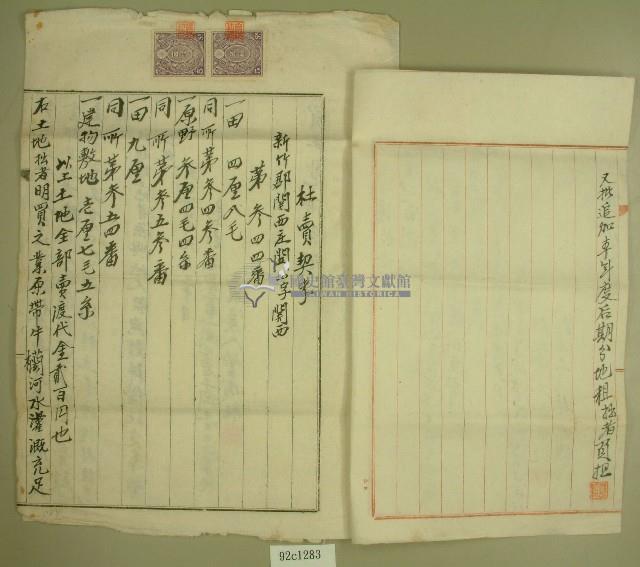 杜賣契字
新竹郡關西庄關西字關西
第參四四番
一田 四厘八毛
同所第參四參番
一原野 參厘四毛四糸
同所第參五參番
一田 九厘
同所第參五四番
一建物敷地 壱厘七毛五糸
以上土地全部賣渡代金貳百円也
右土地拙者明買之業原帶牛欄河水灌溉充足
又批追加本年度后期分地租拙者負担
國史館臺灣文獻館
TAIWAN HISTORICA
92c1283